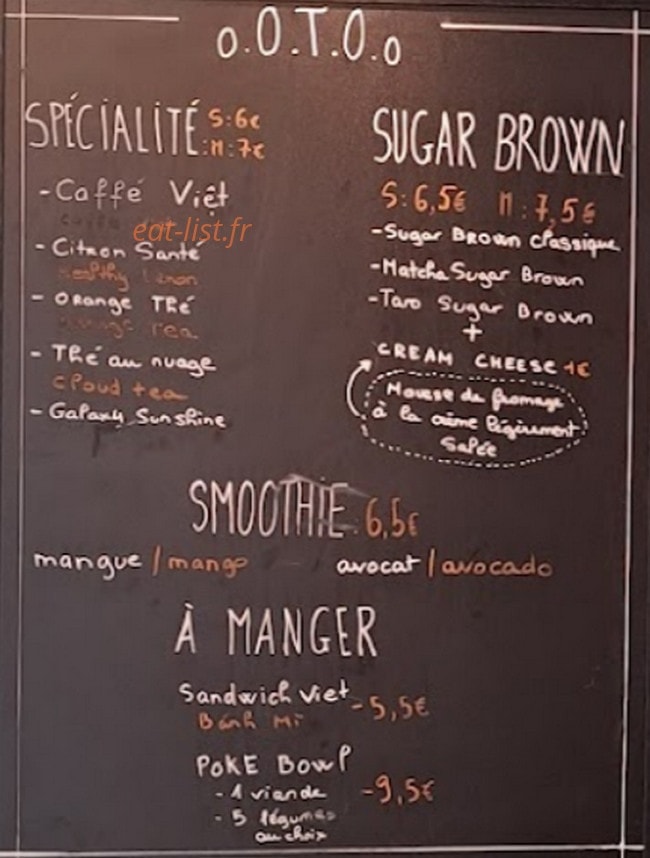 o.O.T.O.o
SPÉCIALITÉ S:6€
:M:7€
- Caffé Việt
eat-list.fr
- Citron Santé
Healthy Lemon
- Orange Thé
Orange Tea
- Thé au nuage
Cloud tea
- Galaxy Sunshine
SUGAR BROWN
S:6,5€ M:7,5€
- Sugar Brown Classique
- Matcha Sugar Brown
- Taro Sugar Brown
+
CREAM CHEESE 1€
Mousse de fromage
à la crème légèrement
Salée
SMOOTHIE: 6,5€
mangue / mango avocat / avocado
À MANGER
Sandwich Viet - 5,5€
Bánh Mì
POKE Bowl
- 1 viande - 9,5€
- 5 légumes
au choix